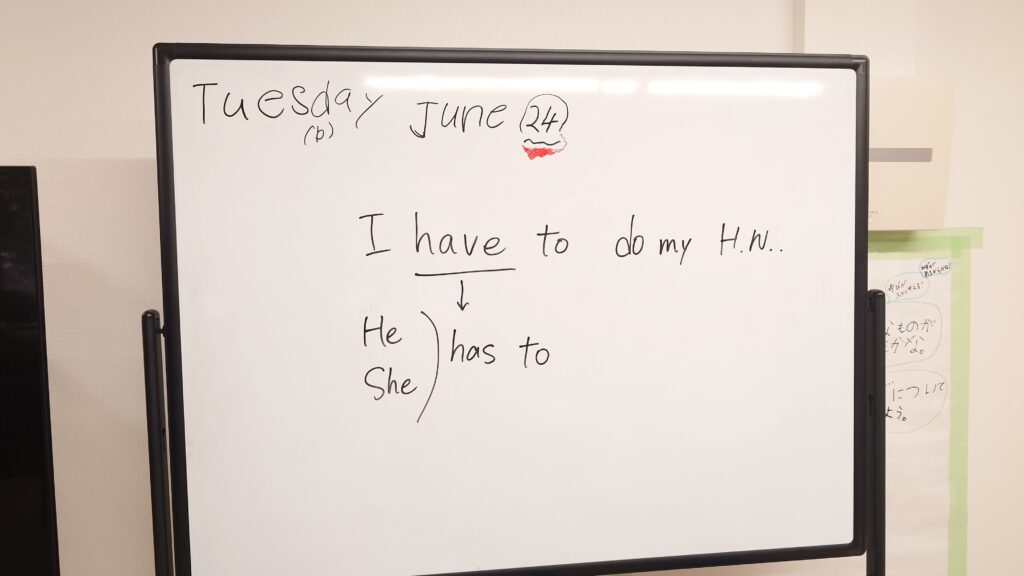 Tuesday June 24
(b)
I have to do my H.W..
He
She
has to
なものが
について
よう。